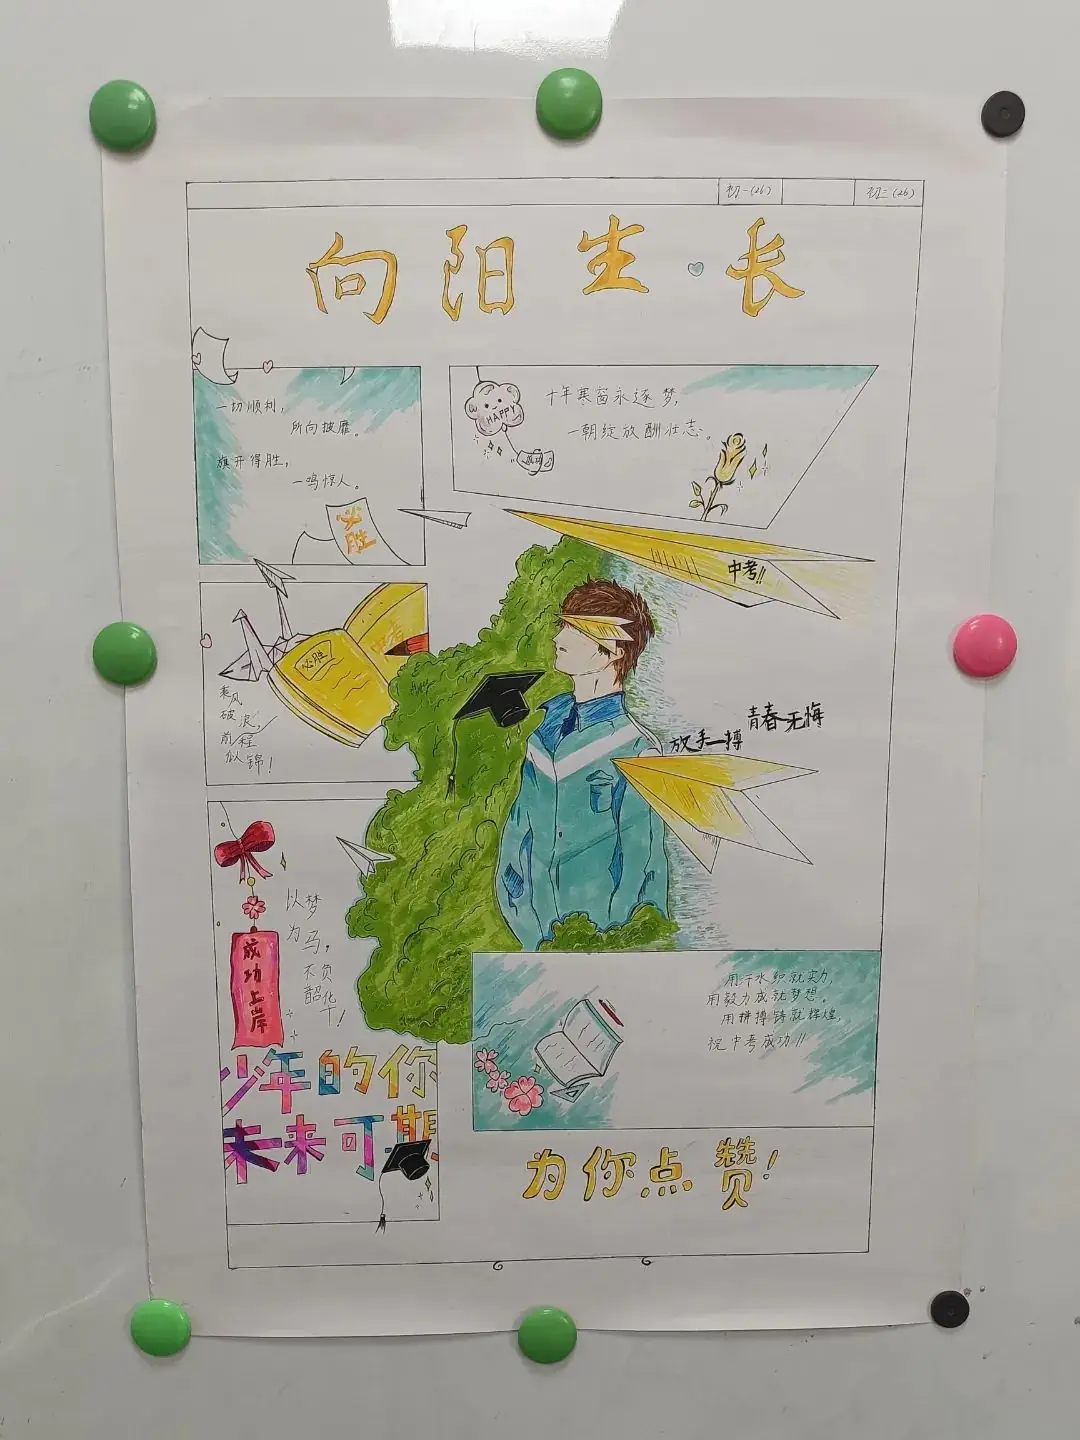 初一(26)
初三(26)
向阳生长
一切顺利，
所向披靡。
旗开得胜，
一鸣惊人。
必胜
HAPPY
十年寒窗永逐梦，
一朝绽放酬壮志。
中考!!
必胜
乘风
破浪，
前程
似锦！
青春无悔
放手一搏
成功上岸
以梦
为马，
不负
韶华！
少年的你
未来可期
用汗水织就实力，
用毅力成就梦想。
用拼搏铸就辉煌，
祝中考成功!!
为你点赞！